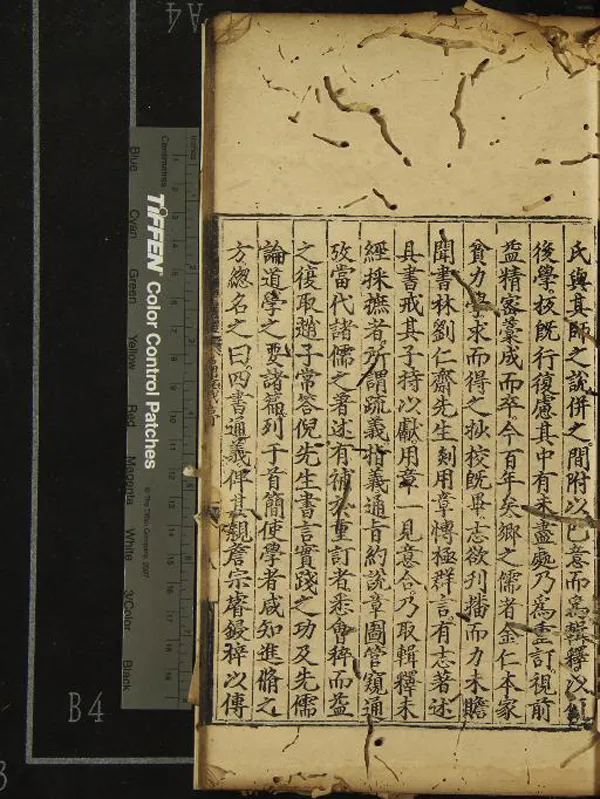 氏與其師之說併之間附以己意而爲輯釋以
後學板既行復慮其中有未盡處乃爲重訂視前
益精密藁成而卒今百年矣鄉之儒者金仁本家
貧力學求而得之抄校既畢志欲刋播而力未贍
聞書林劉仁齋先生剡用章慱極群言有志著述
具書戒其子持以獻用章一見意合乃取輯釋未
經採摭者所謂疏義指義通旨約說章圖管窺通
攷當代諸儒之著述有補於重訂者悉會稡而益
之復取趙子常答倪先生書言實踐之功及先儒
論道學之要諸篇列于首簡使學者咸知進脩之
方緫名之曰四書通義俾其親詹宗睿鋟梓以傳
A4
TIFFEN Color Control Patches
© The Tiffen Company, 2007
Centimetres
Inches
Blue
Cyan
Green
Yellow
Red
Magenta
White
3/Color
Black
B4